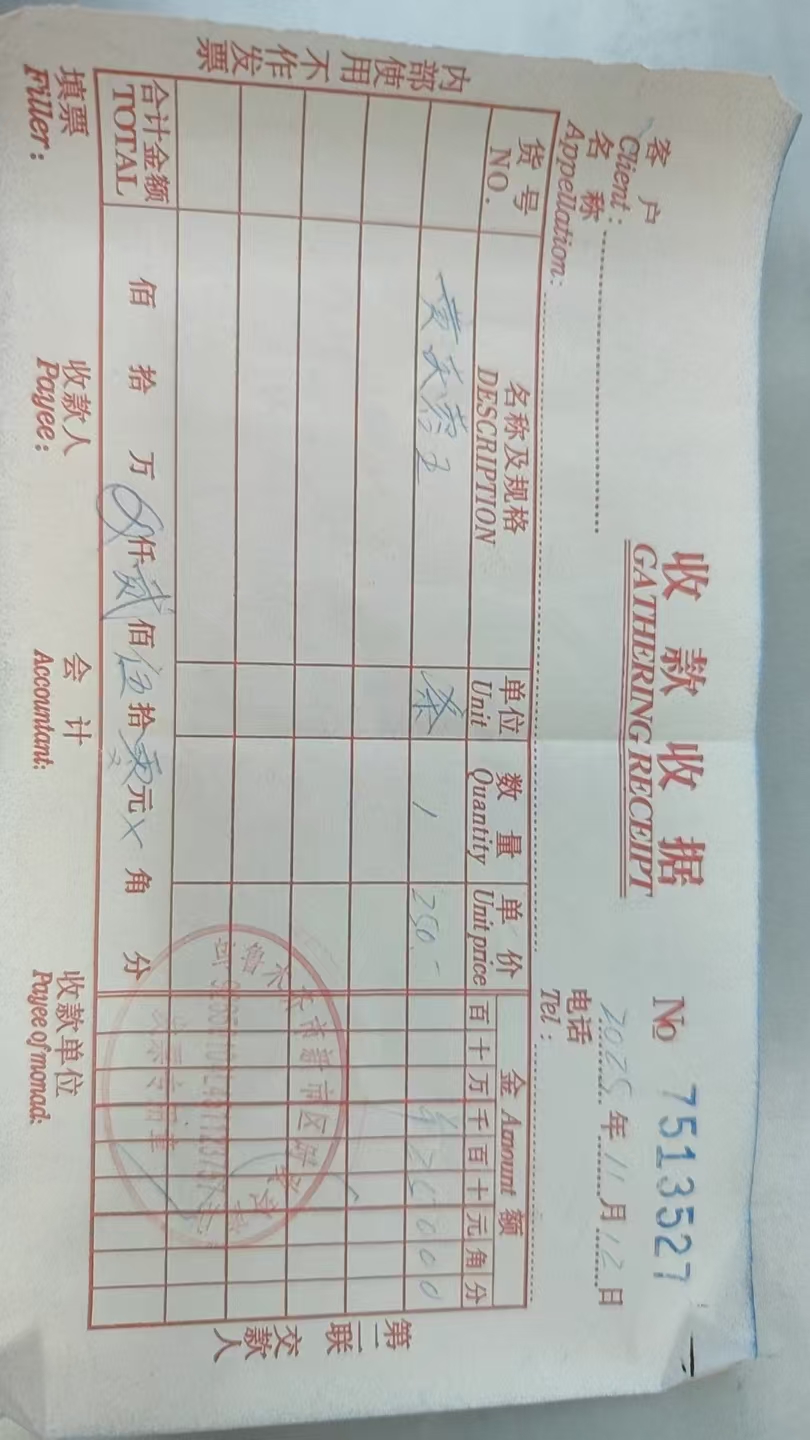 收款收据
GATHERING RECEIPT
No 7513527
客户名称
Client Appellation:
电话
Tel:
2025年11月12日
货号 名称及规格 单位 数量 单价 金额
NO. DESCRIPTION Unit Quantity Unit price Amount
百 十 万 千 百 十 元 角 分
条 1 250.- ¥25000
合计金额 佰 拾 万 仟 贰 佰 伍 拾 零 元 × 角 分
TOTAL
填票 收款人 会计 收款单位
Filler: Payee: Accountant: Payee of monad:
内部使用不作发票
第二联交款人